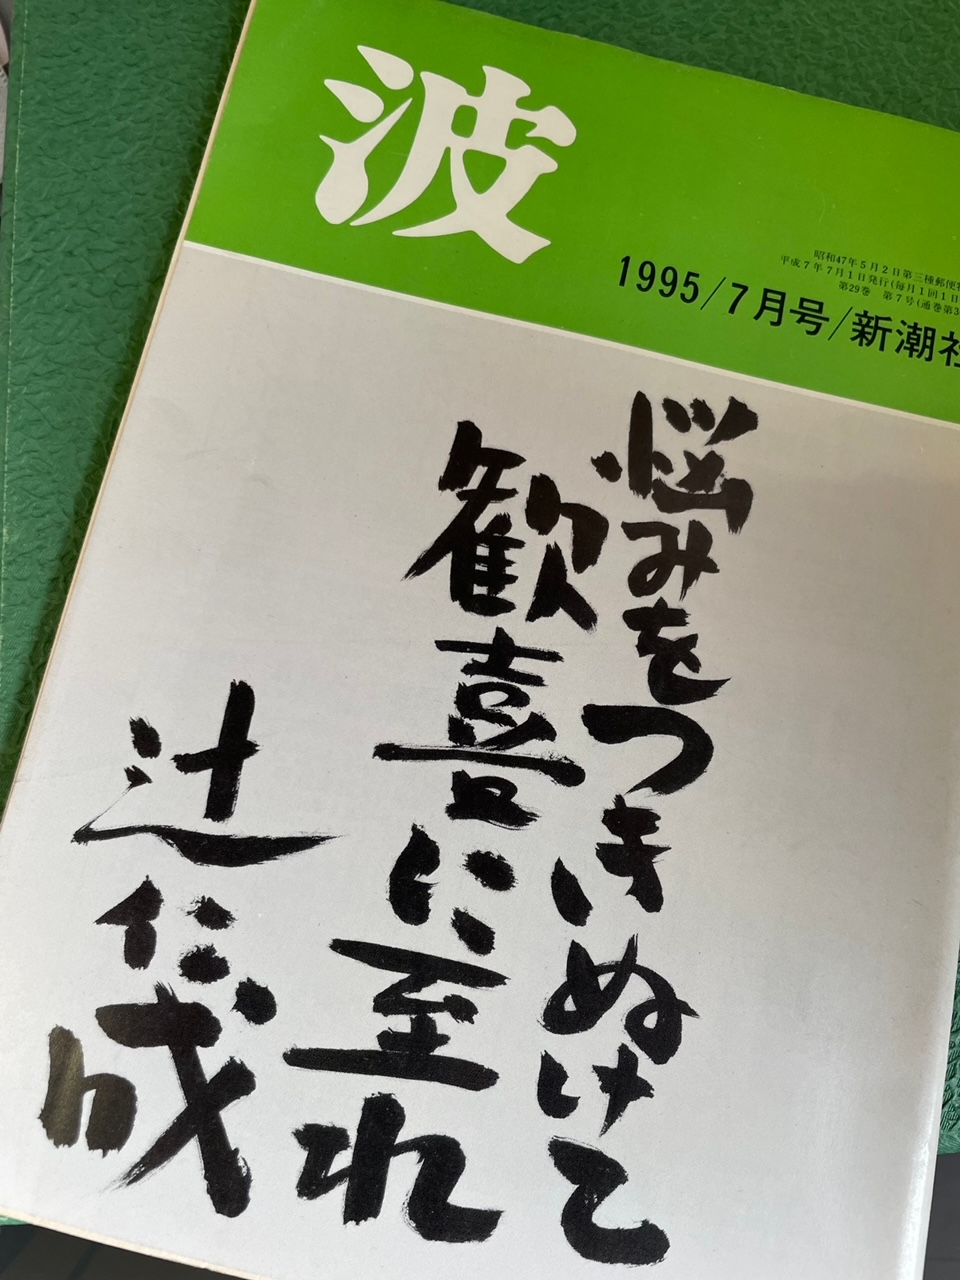 波
昭和47年5月2日第三種郵便
平成7年7月1日発行(毎月1回1日
第29巻 第7号(通巻第3
1995/7月号/新潮社
悩みをつきぬけて
歓喜に至れ
辻仁成